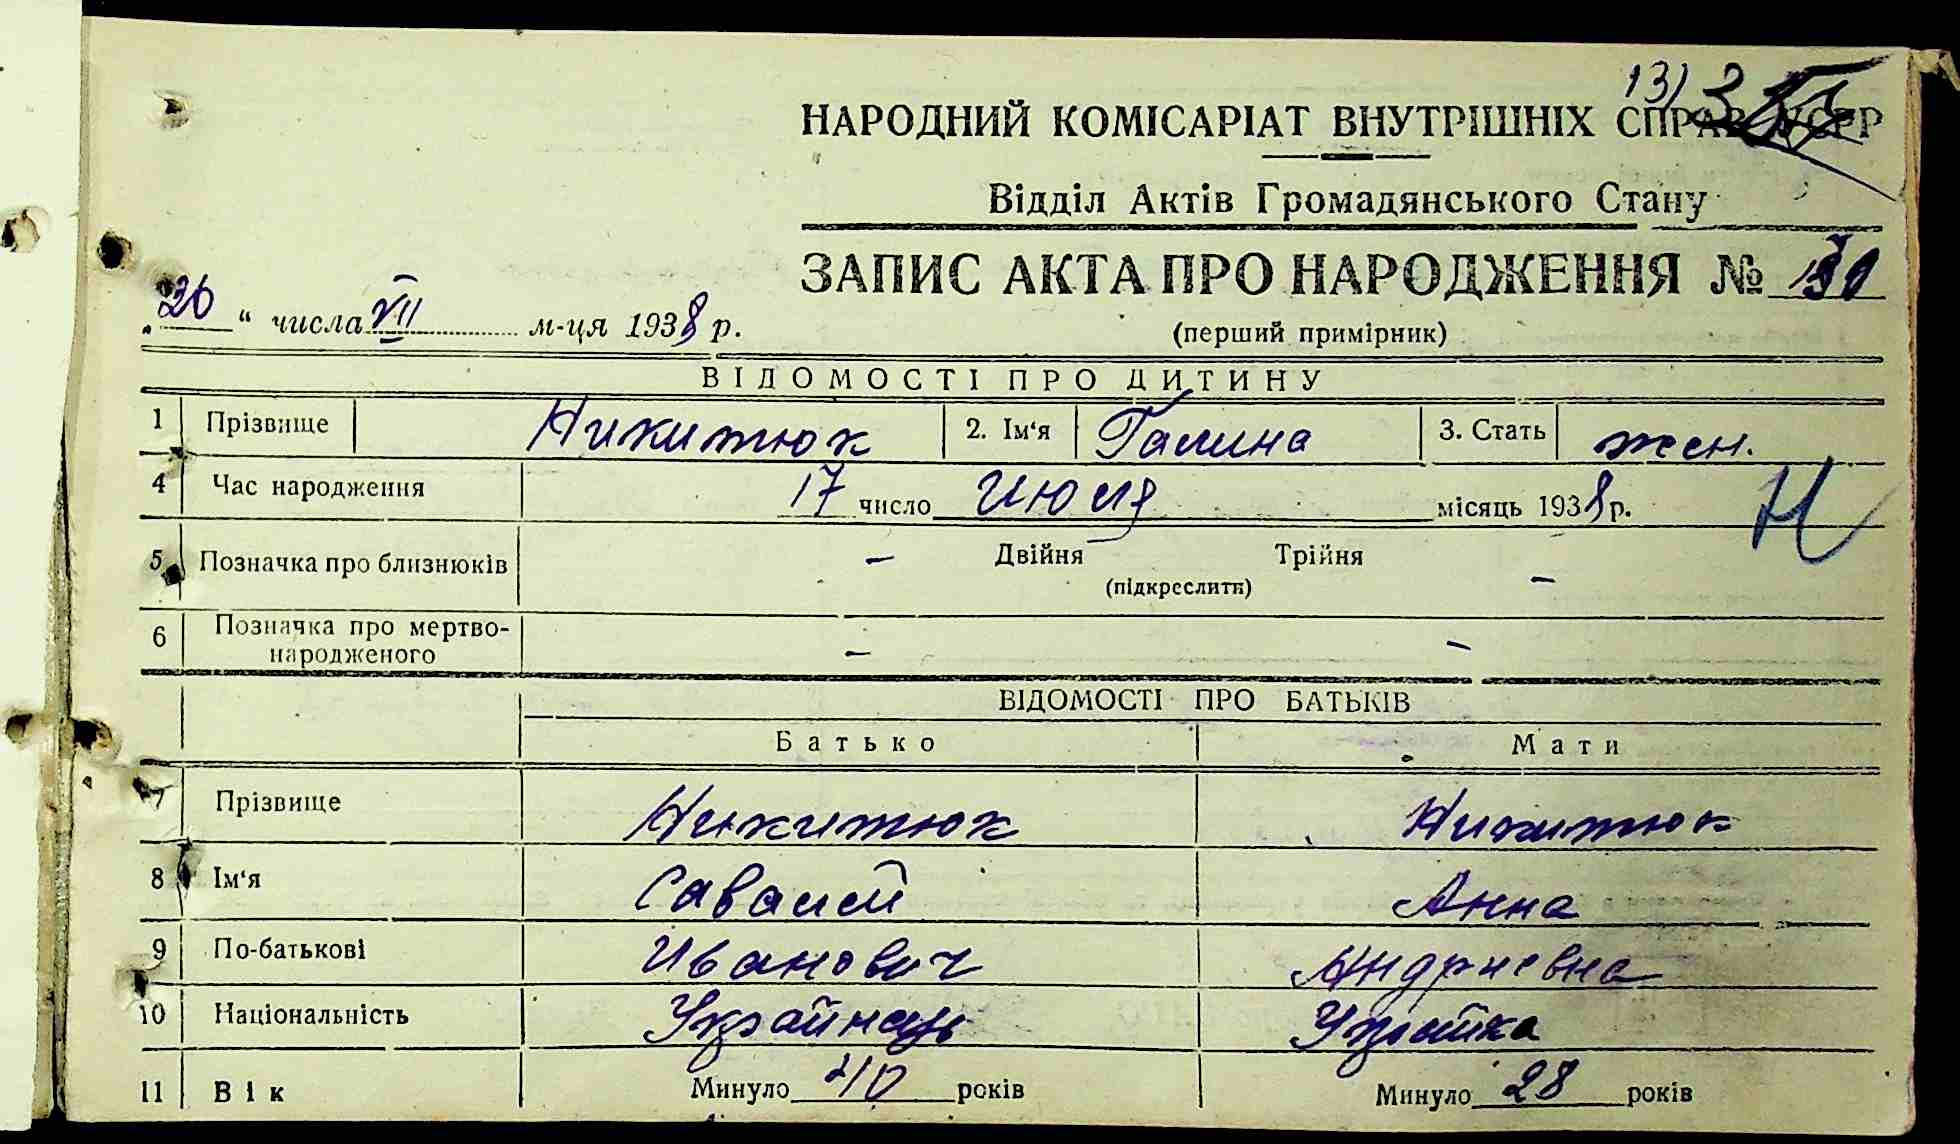 131
НАРОДНИЙ КОМІСАРІАТ ВНУТРІШНІХ СПРАВ УСРР
Відділ Актів Громадянського Стану
ЗАПИС АКТА ПРО НАРОДЖЕННЯ №
„26“ числа VII м-ця 1938 р.
(перший примірник)
ВІДОМОСТІ ПРО ДИТИНУ
1 Прізвище Никитюк 2. Ім‘я Галина 3. Стать жен.
4 Час народження 17 число Июля місяць 1938 р.
Н
5 Позначка про близнюків – Двійня Трійня –
(підкреслити)
6 Позначка про мертво-
народженого – –
ВІДОМОСТІ ПРО БАТЬКІВ
Батько Мати
7 Прізвище Никитюк Никитюк
8 Ім‘я Савалий Анна
9 По-батькові Иванович Андриевна
10 Національність Українець Українка
11 Вік Минуло 40 років Минуло 28 років